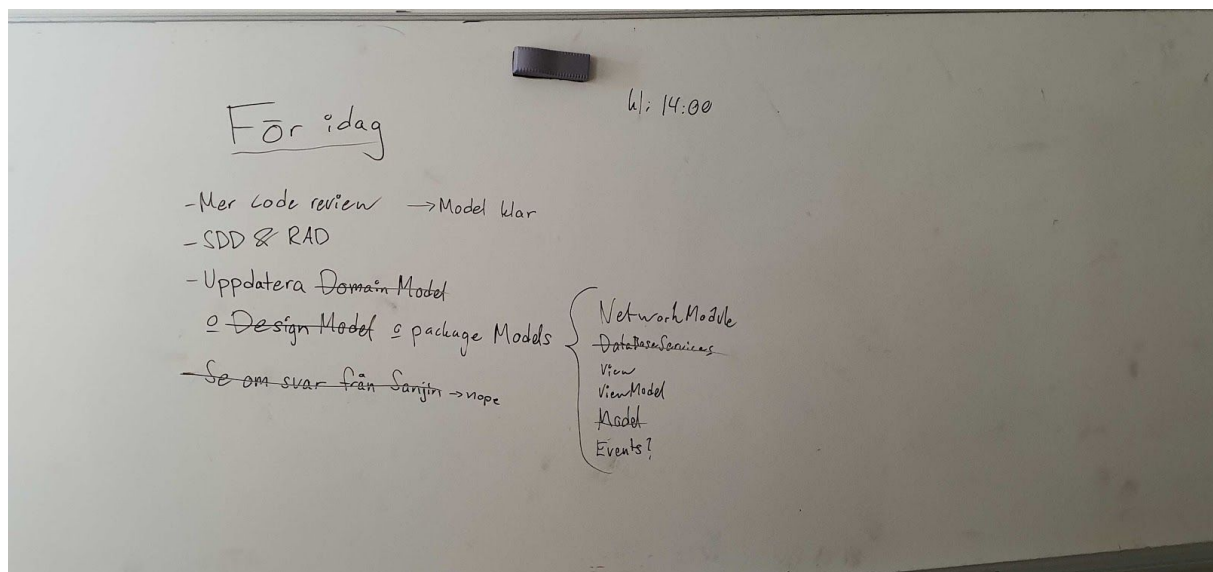 För idag
kl: 14:00
- Mer code review → Model klar
- SDD & RAD
- Uppdatera Domain Model
o Design Model o package Models
- Se om svar från Sanjin → nope
NetworkModule
DataBaseServices
View
ViewModel
Model
Events?